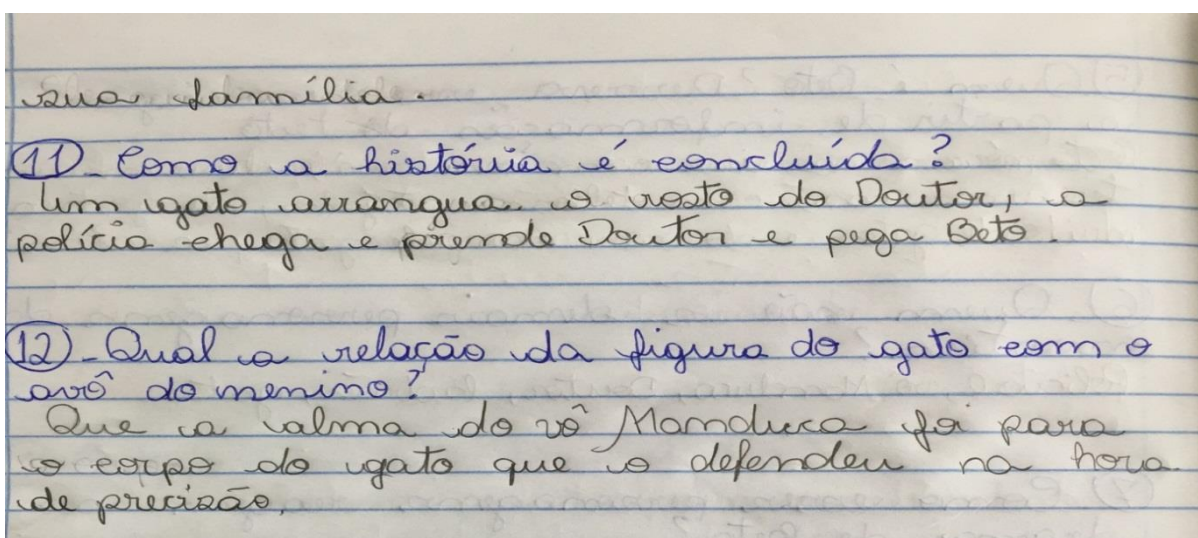 sua família.
11 - Como a história é concluída?
Um gato arrangua o rosto do Doutor, a
polícia chega e prende Doutor e pega Beto.
12 - Qual a relação da figura do gato com o
avô do menino?
Que a alma do vô Manduca foi para
o corpo do gato que o defendeu na hora
de precizão.